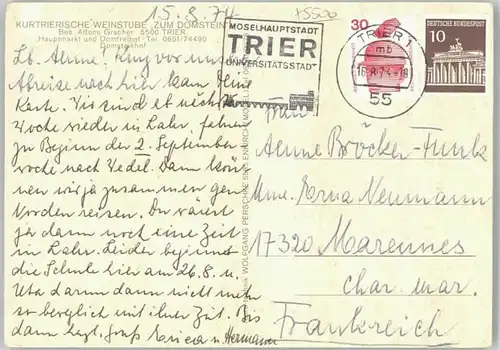 15.8.74
KURTRIERISCHE WEINSTUBE „ZUM DOMSTEIN“
Bes. Alfons Gracher · 5500 TRIER
Hauptmarkt und Domfreihof · Tel. 0651/74490
Domsteinhof
Lb. Aenne! Kurz vor unserer
Abreise nach hier kam Deine
Karte. Wir sind ab nächste
Woche wieder in Lahr, fahren
zu Beginn der 2. September-
woche nach Vedel. Dann kön-
nen wir ja zusammen gen
Norden reisen. Du wärest
ja dann noch eine Zeit
in Lahr. Leider beginnt
die Schule hier am 26.8. u.
Uta darum dann nicht mehr
so beweglich mit ihrer Zeit. Bis
dann hzgl. Gruß Erica u. Hermann
WOLFGANG PERSCHKE 5585 ENKIRCH/MOSEL
MOSELHAUPTSTADT
TRIER
UNIVERSITÄTSSTADT
TRIER 1
mb
16.8.74-18
55
30
DEUTSCHE BUNDESPOST
10
Frau
Aenne Bröcker-Funk
Mme. Erna Neumann
17320 Marennes
char. mar.
Frankreich